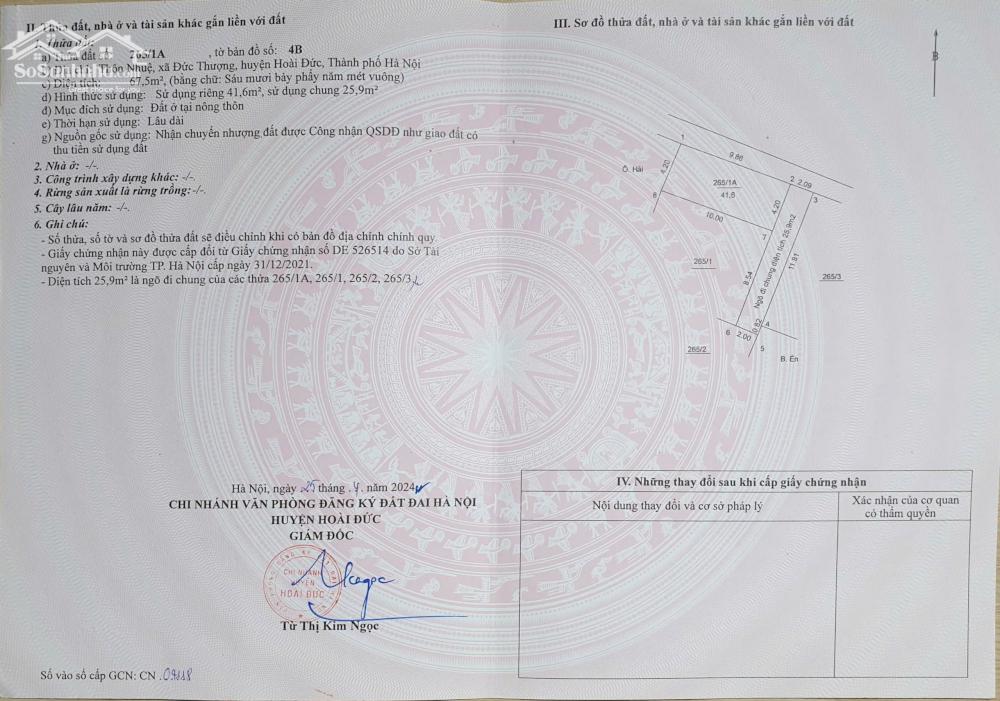 II. Thửa đất, nhà ở và tài sản khác gắn liền với đất
1. Thửa đất:
a) Thửa đất số: 265/1A , tờ bản đồ số: 4B
b) Địa chỉ: Thôn Nhuệ, xã Đức Thượng, huyện Hoài Đức, Thành phố Hà Nội
c) Diện tích: 67,5m², (bằng chữ: Sáu mươi bảy phẩy năm mét vuông)
d) Hình thức sử dụng: Sử dụng riêng 41,6m², sử dụng chung 25,9m²
đ) Mục đích sử dụng: Đất ở tại nông thôn
e) Thời hạn sử dụng: Lâu dài
g) Nguồn gốc sử dụng: Nhận chuyển nhượng đất được Công nhận QSDĐ như giao đất có
thu tiền sử dụng đất
2. Nhà ở: -/-.
3. Công trình xây dựng khác: -/-.
4. Rừng sản xuất là rừng trồng:-/-.
5. Cây lâu năm: -/-.
6. Ghi chú:
- Số thửa, số tờ và sơ đồ thửa đất sẽ điều chỉnh khi có bản đồ địa chính chính quy.
- Giấy chứng nhận này được cấp đổi từ Giấy chứng nhận số DE 526514 do Sở Tài
nguyên và Môi trường TP. Hà Nội cấp ngày 31/12/2021.
- Diện tích 25,9m² là ngõ đi chung của các thửa 265/1A, 265/1, 265/2, 265/3
SoSanhNha.com
Hà Nội, ngày 25 tháng 4 năm 2024
CHI NHÁNH VĂN PHÒNG ĐĂNG KÝ ĐẤT ĐAI HÀ NỘI
HUYỆN HOÀI ĐỨC
GIÁM ĐỐC
CHI NHÁNH
HUYỆN
HOÀI ĐỨC
Từ Thị Kim Ngọc
Số vào sổ cấp GCN: CN 09118
III. Sơ đồ thửa đất, nhà ở và tài sản khác gắn liền với đất
B
1
9.86
2
2.09
3
Ô. Hải
4.20
265/1A
41,6
4.20
8
10.00
7
265/1
8.54
Ngõ đi chung diện tích 25.9m2
11.81
265/3
6
2.00
0.82
4
5
265/2
B. Én
IV. Những thay đổi sau khi cấp giấy chứng nhận
Nội dung thay đổi và cơ sở pháp lý
Xác nhận của cơ quan
có thẩm quyền